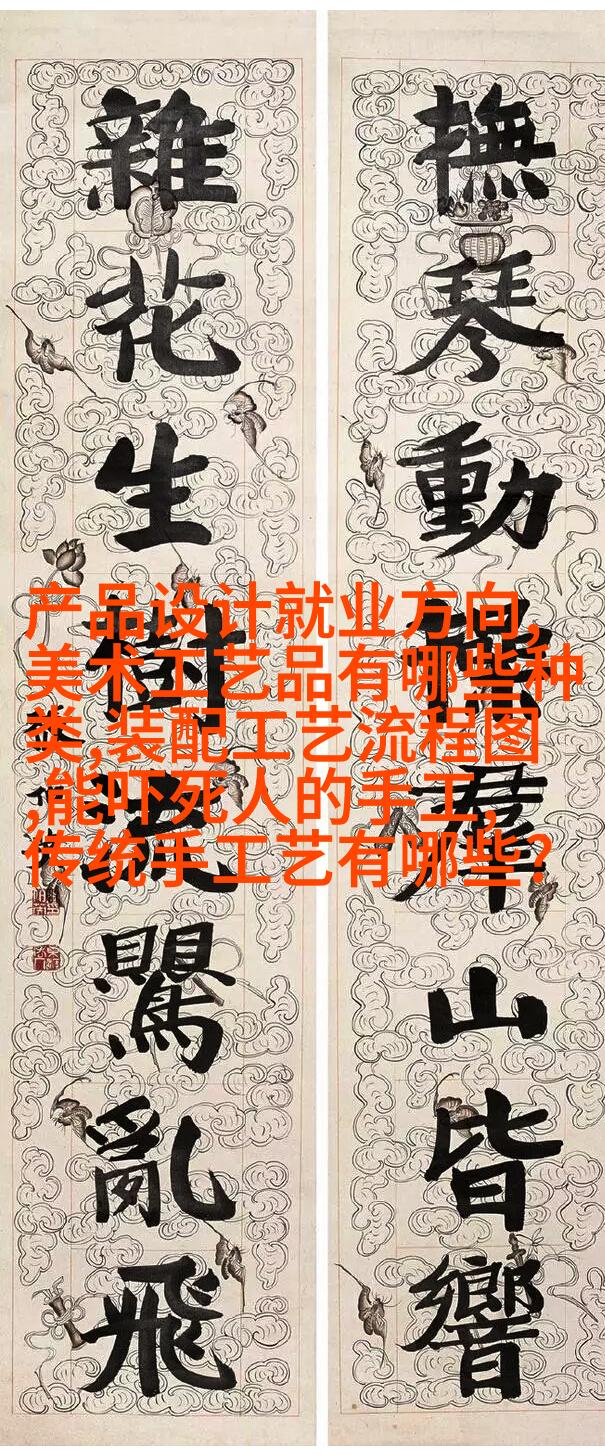 撫琴動操羣山皆響
雜花生樹流鸎亂飛
产品设计就业方向,
美术工艺品有哪些种
类,装配工艺流程图
,能吓死人的手工,
传统手工艺有哪些?